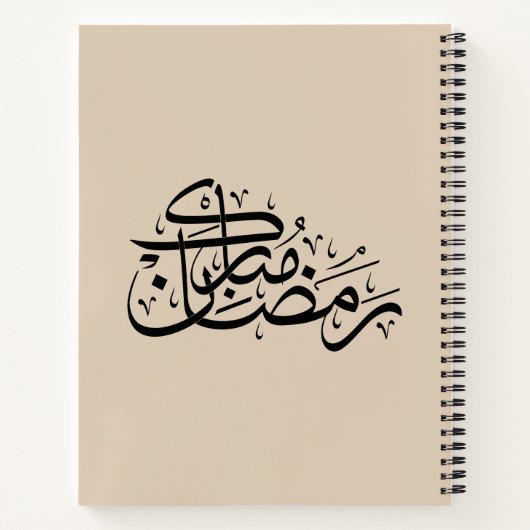 رَمُضَان مُبَارَك